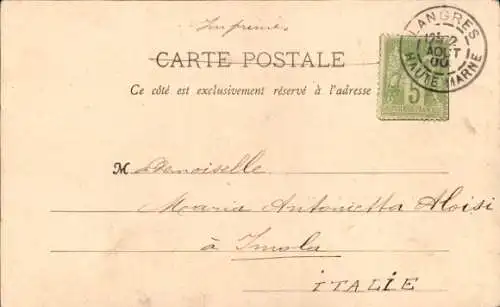 Imprimé
CARTE POSTALE
Ce côté est exclusivement réservé à l'adresse
LANGRES
AOUT
00
HAUTE MARNE
5
Mademoiselle
Maria Antonietta Aloisi
à Imola
ITALIE